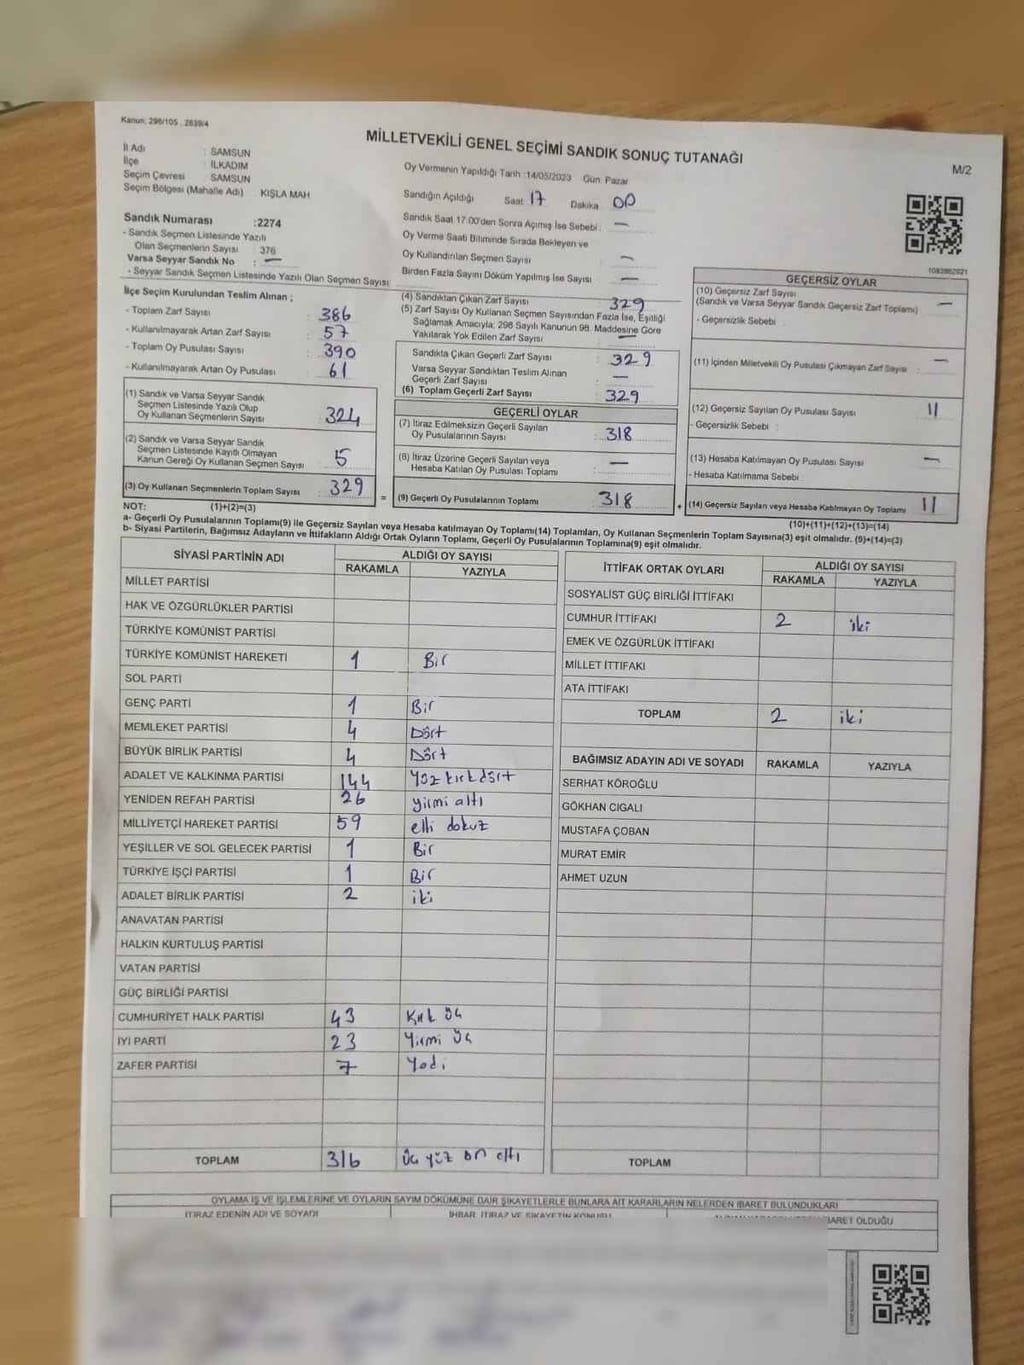 Kanun; 298/105 , 2839/4
MİLLETVEKİLİ GENEL SEÇİMİ SANDIK SONUÇ TUTANAĞI
M/2
İl Adı : SAMSUN
İlçe : İLKADIM
Seçim Çevresi : SAMSUN
Seçim Bölgesi (Mahalle Adı) : KIŞLA MAH
Oy Vermenin Yapıldığı Tarih :14/05/2023 Gün: Pazar
Sandığın Açıldığı Saat 17 Dakika 00
Sandık Saat 17:00'den Sonra Açımış İse Sebebi : —
Oy Verme Saati Bitiminde Sırada Bekleyen ve
Oy Kullandırılan Seçmen Sayısı : —
Birden Fazla Sayım Döküm Yapılmış İse Sayısı : —
Sandık Numarası :2274
- Sandık Seçmen Listesinde Yazılı
Olan Seçmenlerin Sayısı : 376
Varsa Seyyar Sandık No : —
- Seyyar Sandık Seçmen Listesinde Yazılı Olan Seçmen Sayısı :
1083862021
İlçe Seçim Kurulundan Teslim Alınan ;
- Toplam Zarf Sayısı : 386
- Kullanılmayarak Artan Zarf Sayısı : 57
- Toplam Oy Pusulası Sayısı : 390
- Kullanılmayarak Artan Oy Pusulası : 61
(1) Sandık ve Varsa Seyyar Sandık
Seçmen Listesinde Yazılı Olup
Oy Kullanan Seçmenlerin Sayısı : 324
(2) Sandık ve Varsa Seyyar Sandık
Seçmen Listesinde Kayıtlı Olmayan
Kanun Gereği Oy Kullanan Seçmen Sayısı : 5
(3) Oy Kullanan Seçmenlerin Toplam Sayısı : 329
(4) Sandıktan Çıkan Zarf Sayısı : 329
(5) Zarf Sayısı Oy Kullanan Seçmen Sayısından Fazla İse, Eşitliği
Sağlamak Amacıyla; 298 Sayılı Kanunun 98. Maddesine Göre
Yakılarak Yok Edilen Zarf Sayısı : —
Sandıkta Çıkan Geçerli Zarf Sayısı : 329
Varsa Seyyar Sandıktan Teslim Alınan
Geçerli Zarf Sayısı : —
(6) Toplam Geçerli Zarf Sayısı : 329
GEÇERLİ OYLAR
(7) İtiraz Edilmeksizin Geçerli Sayılan
Oy Pusulalarının Sayısı : 318
(8) İtiraz Üzerine Geçerli Sayılan veya
Hesaba Katılan Oy Pusulası Toplamı : —
= (9) Geçerli Oy Pusulalarının Toplamı : 318
GEÇERSİZ OYLAR
(10) Geçersiz Zarf Sayısı
(Sandık ve Varsa Seyyar Sandık Geçersiz Zarf Toplamı) : —
- Geçersizlik Sebebi :
(11) İçinden Milletvekili Oy Pusulası Çıkmayan Zarf Sayısı : —
(12) Geçersiz Sayılan Oy Pusulası Sayısı : 11
- Geçersizlik Sebebi :
(13) Hesaba Katılmayan Oy Pusulası Sayısı : —
- Hesaba Katılmama Sebebi :
+ (14) Geçersiz Sayılan veya Hesaba Katılmayan Oy Toplamı : 11
NOT: (1)+(2)=(3)
(10)+(11)+(12)+(13)=(14)
a- Geçerli Oy Pusulalarının Toplamı(9) ile Geçersiz Sayılan veya Hesaba katılmayan Oy Toplamı(14) Toplamları, Oy Kullanan Seçmenlerin Toplam Sayısına(3) eşit olmalıdır. (9)+(14)=(3)
b- Siyasi Partilerin, Bağımsız Adayların ve İttifakların Aldığı Ortak Oyların Toplamı, Geçerli Oy Pusulalarının Toplamına(9) eşit olmalıdır.
SİYASİ PARTİNİN ADI ALDIĞI OY SAYISI
RAKAMLA YAZIYLA
MİLLET PARTİSİ
HAK VE ÖZGÜRLÜKLER PARTİSİ
TÜRKİYE KOMÜNİST PARTİSİ
TÜRKİYE KOMÜNİST HAREKETİ 1 Bir
SOL PARTİ
GENÇ PARTİ 1 Bir
MEMLEKET PARTİSİ 4 Dört
BÜYÜK BİRLİK PARTİSİ 4 Dört
ADALET VE KALKINMA PARTİSİ 144 Yöz kırk dört
YENİDEN REFAH PARTİSİ 26 yirmi altı
MİLLİYETÇİ HAREKET PARTİSİ 59 elli dokuz
YEŞİLLER VE SOL GELECEK PARTİSİ 1 Bir
TÜRKİYE İŞÇİ PARTİSİ 1 Bir
ADALET BİRLİK PARTİSİ 2 iki
ANAVATAN PARTİSİ
HALKIN KURTULUŞ PARTİSİ
VATAN PARTİSİ
GÜÇ BİRLİĞİ PARTİSİ
CUMHURİYET HALK PARTİSİ 43 Kırk üç
İYİ PARTİ 23 Yirmi üç
ZAFER PARTİSİ 7 Yedi
TOPLAM 316 üç yüz on altı
İTTİFAK ORTAK OYLARI ALDIĞI OY SAYISI
RAKAMLA YAZIYLA
SOSYALİST GÜÇ BİRLİĞİ İTTİFAKI
CUMHUR İTTİFAKI 2 iki
EMEK VE ÖZGÜRLÜK İTTİFAKI
MİLLET İTTİFAKI
ATA İTTİFAKI
TOPLAM 2 iki
BAĞIMSIZ ADAYIN ADI VE SOYADI RAKAMLA YAZIYLA
SERHAT KÖROĞLU
GÖKHAN CIGALI
MUSTAFA ÇOBAN
MURAT EMİR
AHMET UZUN
TOPLAM
OYLAMA İŞ VE İŞLEMLERİNE VE OYLARIN SAYIM DÖKÜMÜNE DAİR ŞİKAYETLERLE BUNLARA AİT KARARLARIN NELERDEN İBARET BULUNDUKLARI
İTİRAZ EDENİN ADI VE SOYADI İHBAR, İTİRAZ VE ŞİKAYETİN KONUSU İBARET OLDUĞU